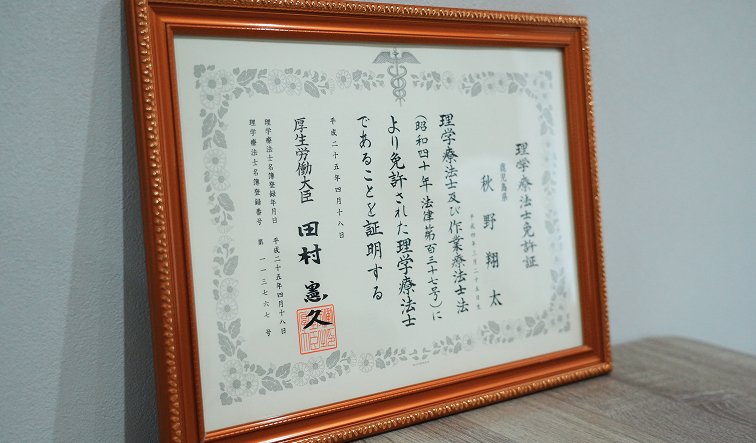 理学療法士免許証
鹿児島県
秋野翔太
平成四年二月二十五日生
理学療法士及び作業療法士法
(昭和四十年法律第百三十七号)に
より免許された理学療法士
であることを証明する
平成二十五年四月十八日
厚生労働大臣 田村憲久
理学療法士名簿登録年月日 平成二十五年四月十八日
理学療法士名簿登録番号 第一一三七六七号